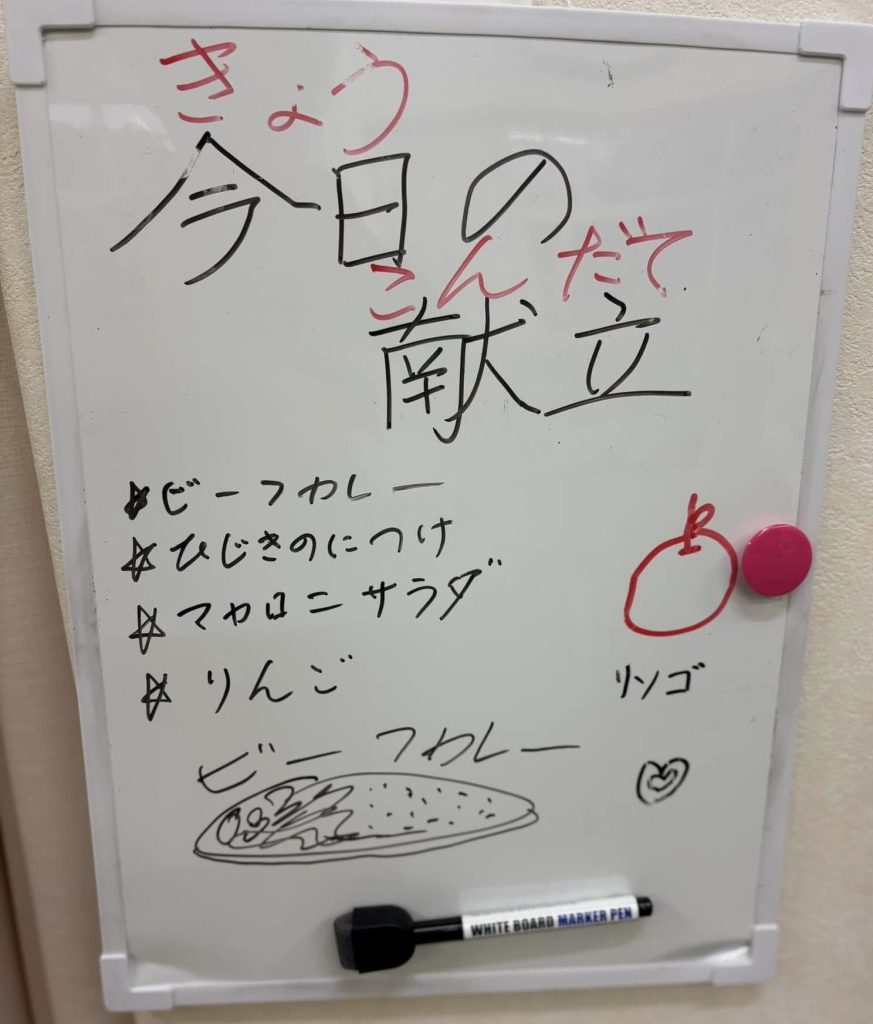 きょう
今日の
こんだて
献立
☆ビーフカレー
☆ひじきのにつけ
☆マカロニサラダ
☆りんご
リンゴ
ビーフカレー
WHITE BOARD MARKER PEN